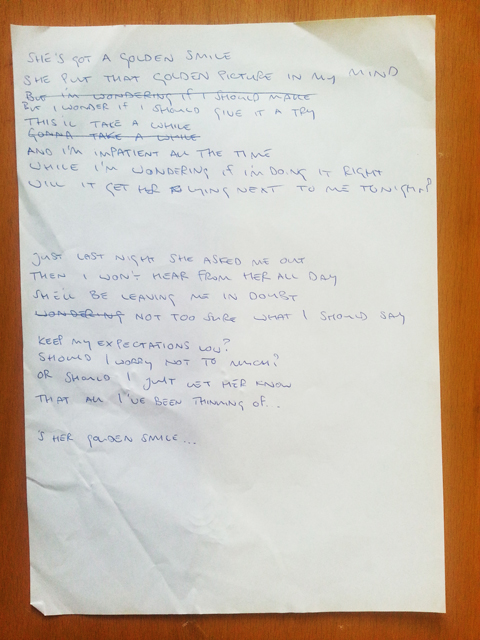 SHE'S GOT A GOLDEN SMILE
SHE PUT THAT GOLDEN PICTURE IN MY MIND
BUT I'M WONDERING IF I SHOULD MAKE
BUT I WONDER IF I SHOULD GIVE IT A TRY
THIS'LL TAKE A WHILE
GONNA TAKE A WHILE
AND I'M IMPATIENT ALL THE TIME
WHILE I'M WONDERING IF I'M DOING IT RIGHT
WILL IT GET HER LYING NEXT TO ME TONIGHT?
JUST LAST NIGHT SHE ASKED ME OUT
THEN I WON'T HEAR FROM HER ALL DAY
SHE'LL BE LEAVING ME IN DOUBT
WONDERING NOT TOO SURE WHAT I SHOULD SAY
KEEP MY EXPECTATIONS LOW?
SHOULD I WORRY NOT TO MUCH?
OR SHOULD I JUST LET HER KNOW
THAT ALL I'VE BEEN THINKING OF...
'S HER GOLDEN SMILE...